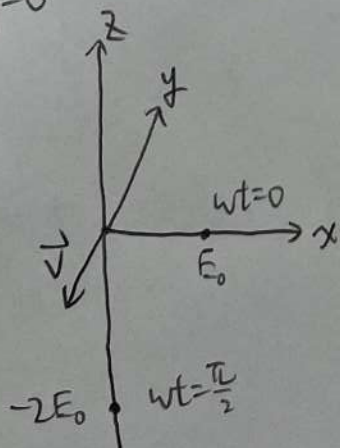 z
y
wt=0
x
E₀
V⃗
-2E₀ wt=π/2